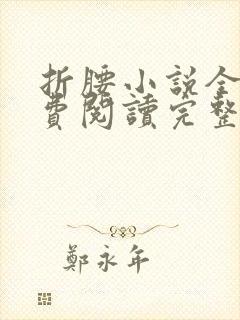 折腰小说全
費閱讀完整
鄭永年